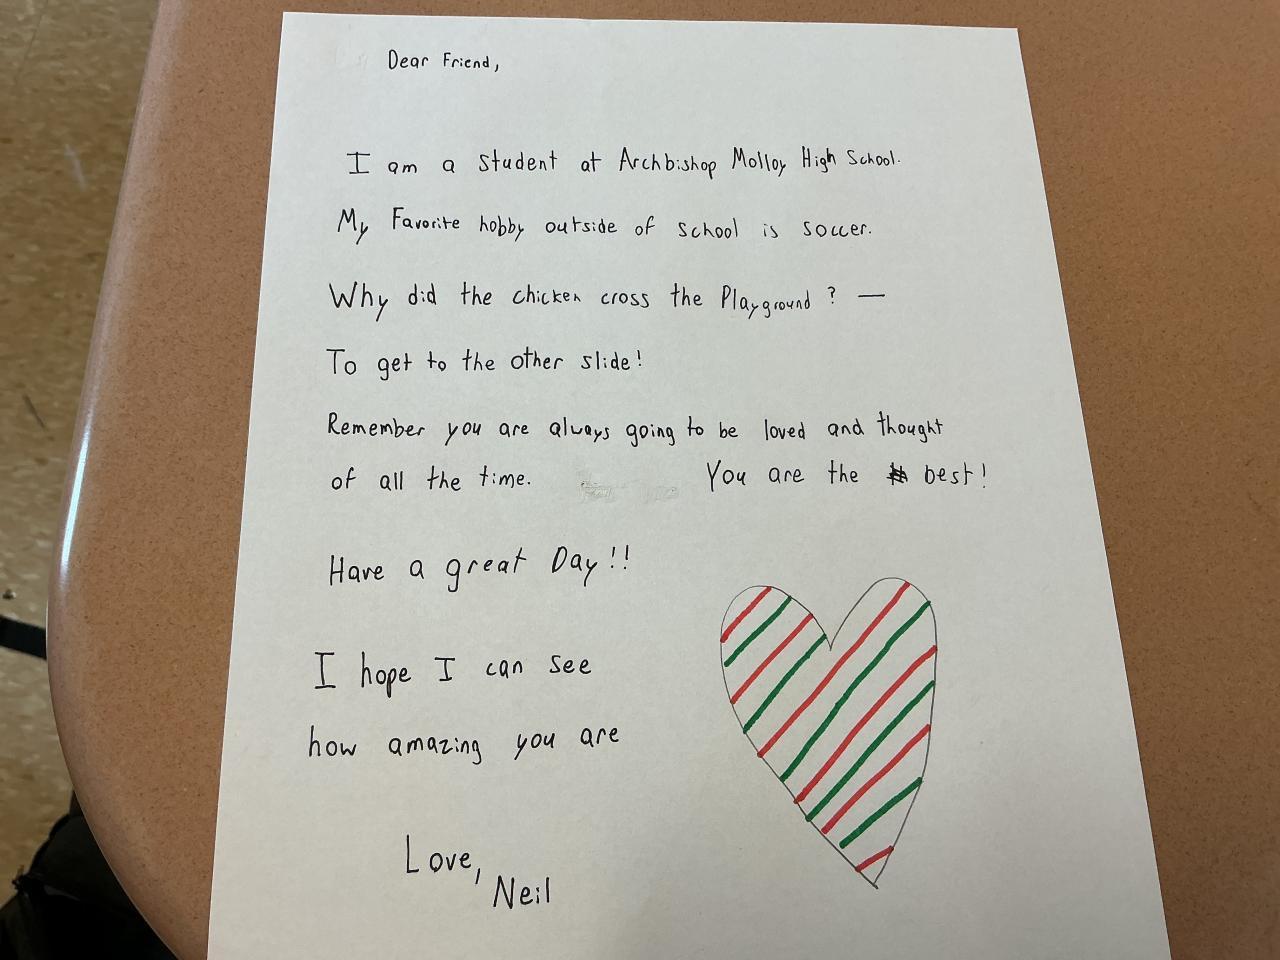 Dear Friend,
I am a student at Archbishop Molloy High School.
My Favorite hobby outside of school is soccer.
Why did the chicken cross the Playground? —
To get to the other slide!
Remember you are always going to be loved and thought
of all the time. You are the best!
Have a great Day!!
I hope I can see
how amazing you are
Love,
Neil